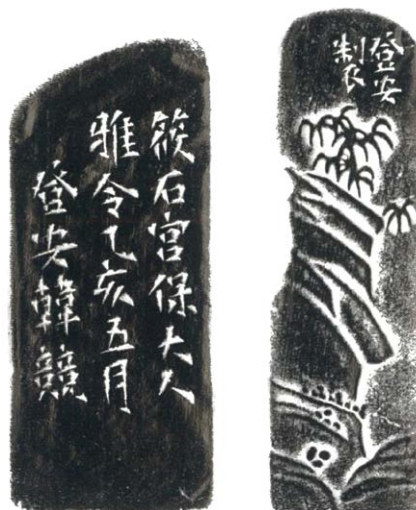 筱石宮保大人
雅令乙亥五月
登安韓競
登安
製